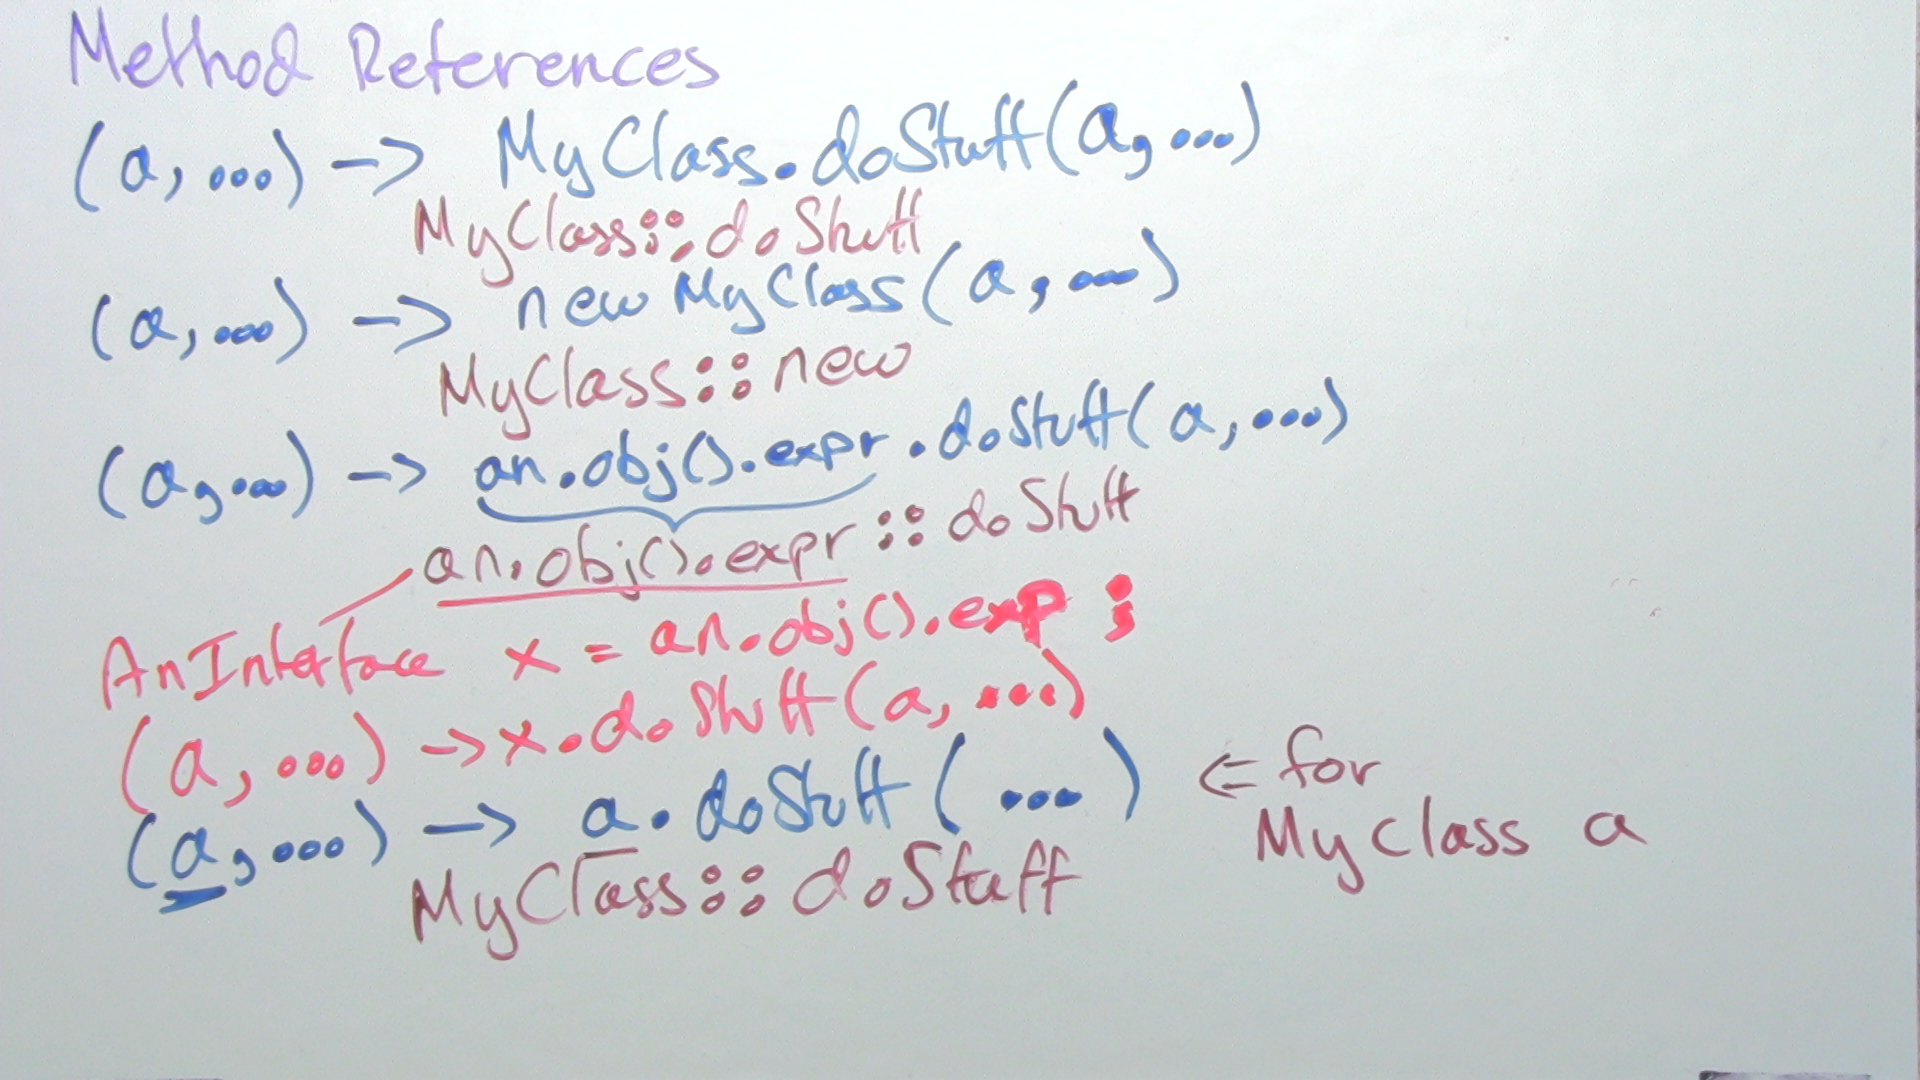 Method References
(a, ...) -> MyClass.doStuff(a, ...)
MyClass::doStuff
(a, ...) -> new MyClass(a, ...)
MyClass::new
(a, ...) -> an.obj().expr.doStuff(a, ...)
an.obj().expr::doStuff
AnInterface x = an.obj().exp;
(a, ...) -> x.doStuff(a, ...)
(a, ...) -> a.doStuff(...) <= for
MyClass a
MyClass::doStuff